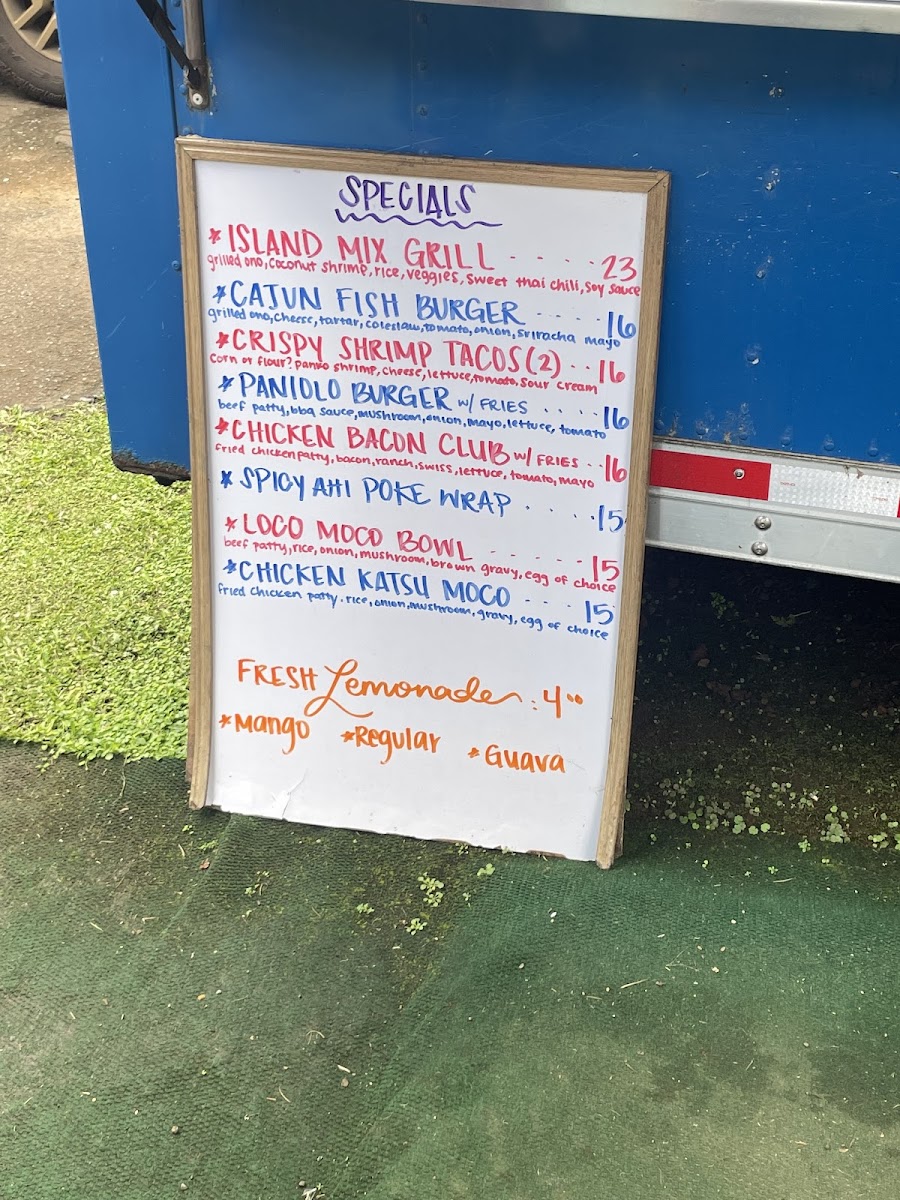 SPECIALS
* ISLAND MIX GRILL - - - - - 23
grilled ono, coconut shrimp, rice, veggies, sweet thai chili, soy sauce
* CAJUN FISH BURGER - - - - 16
grilled ono, cheese, tartar, coleslaw, tomato, onion, sriracha mayo
* CRISPY SHRIMP TACOS (2) . . 16
corn or flour? panko shrimp, cheese, lettuce, tomato, sour cream
* PANIOLO BURGER w/ FRIES . . . . . 16
beef patty, bbq sauce, mushroom, onion, mayo, lettuce, tomato
* CHICKEN BACON CLUB w/ FRIES . . 16
fried chicken patty, bacon, ranch, swiss, lettuce, tomato, mayo
* SPICY AHI POKE WRAP . . . . . 15
* LOCO MOCO BOWL - - - - - - 15
beef patty, rice, onion, mushroom, brown gravy, egg of choice
* CHICKEN KATSU MOCO - - - - 15
fried chicken patty, rice, onion, mushroom, gravy, egg of choice
FRESH Lemonade : 4.00
* Mango * Regular * Guava